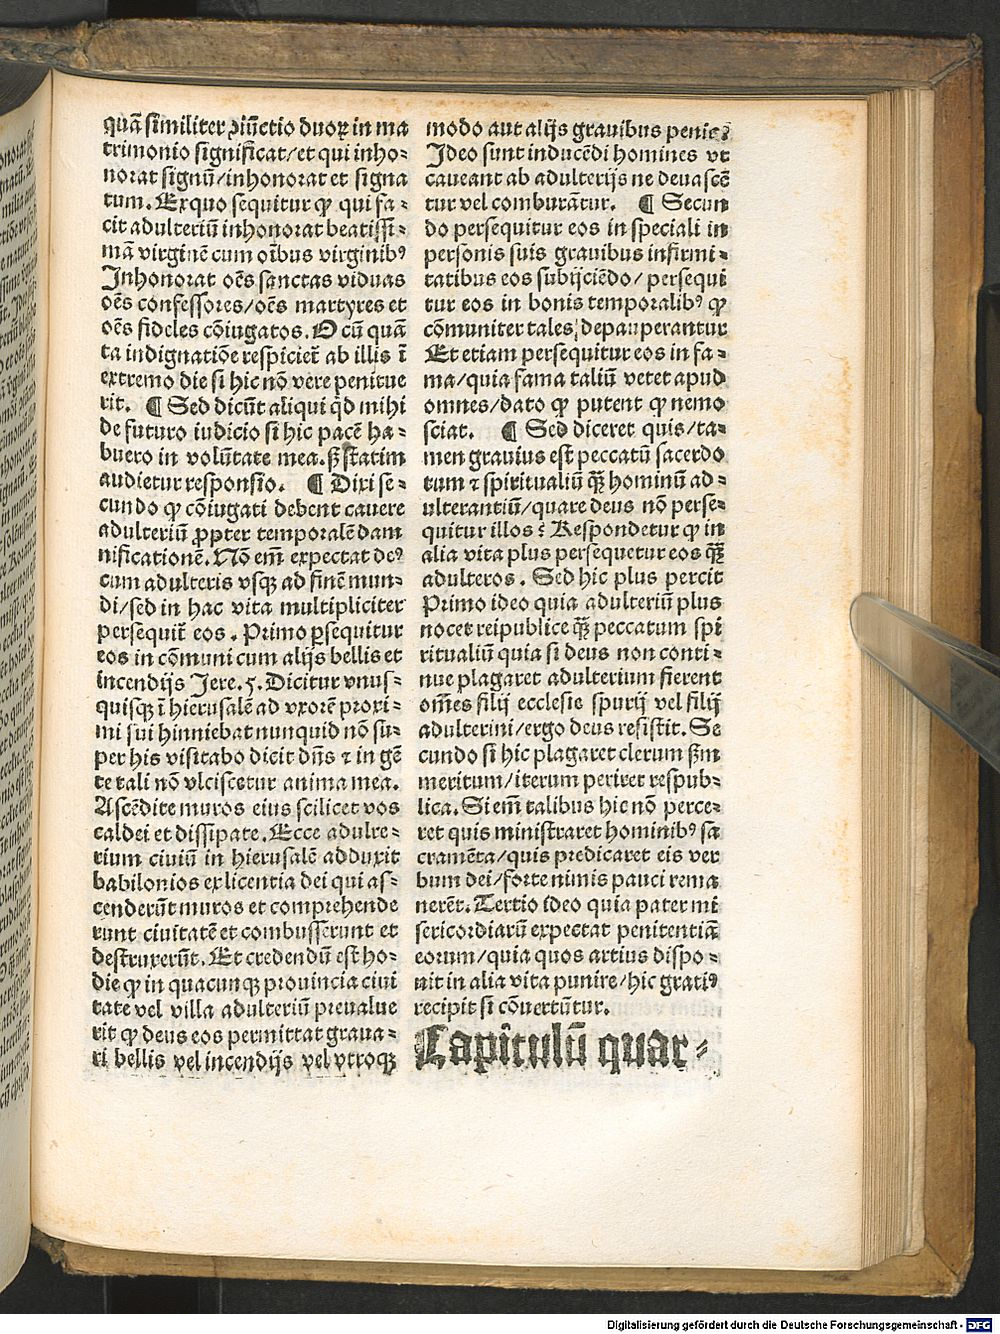 quā similiter ꝯiūctio duoꝝ in ma
trimonio significat/et qui inho⸗
norat signū/inhonorat et signa
tum. Exquo sequitur ꝙ qui fa⸗
cit adulteriū inhonorat beatissi⸗
mā virginē cum oībus virginibꝰ
Inhonorat oēs sanctas viduas
oēs confessores/oēs martyres et
oēs fideles cōiugatos. O cū quā
ta indignatiōe respiciet̄ ab illis ī
extremo die si hic nō vere penitue
rit. ¶ Sed dicūt aliqui qd̄ mihi
de futuro iudicio si hic pacē ha⸗
buero in volūtate mea. sꝫ statim
audietur responsio. ¶ Dixi se⸗
cundo ꝙ cōiugati debent cauere
adulteriū ꝓpter temporalē dam
nificationē. Nō em̄ expectat deꝰ
cum adulteris vsqꝫ ad finē mun⸗
di/sed in hac vita multipliciter
persequit̄ eos. Primo ꝑsequitur
eos in cōmuni cum alijs bellis et
incendijs Jere. 5. Dicitur vnus⸗
quisqꝫ ī hierusalē ad vxorē proxi⸗
mi sui hinniebat nunquid nō su⸗
per his visitabo dicit dn̄s ⁊ in gē
te tali nō vlciscetur anima mea.
Ascēdite muros eius scilicet vos
caldei et dissipate. Ecce adulte⸗
rium ciuiū in hierusalē adduxit
babilonios ex licentia dei qui as⸗
cenderūt muros et comprehende
runt ciuitatē et combusserunt et
destruxerūt. Et credendū est ho⸗
die ꝙ in quacunqꝫ prouincia ciui
tate vel villa adulteriū preualue
rit ꝙ deus eos permittat graua⸗
ri bellis vel incendijs vel vtroqꝫ
modo aut alijs grauibus penis
Ideo sunt inducēdi homines vt
caueant ab adulterijs ne deuascē
tur vel comburātur. ¶ Secun
do persequitur eos in speciali in
personis suis grauibus infirmi⸗
tatibus eos subijciēdo/persequi
tur eos in bonis temporalibꝰ ꝙ
cōmuniter tales depauperantur
Et etiam persequitur eos in fa⸗
ma/quia fama taliū vetet apud
omnes/dato ꝙ putent ꝙ nemo
sciat. ¶ Sed diceret quis/ta⸗
men grauius est peccatū sacerdo
tum ⁊ spiritualiū qꝫ̄ hominū ad⸗
ulterantiū/quare deus nō perse⸗
quitur illos? Respondetur ꝙ in
alia vita plus persequetur eos qꝫ̄
adulteros. Sed hic plus percit
Primo ideo quia adulteriū plus
nocet reipublice qꝫ̄ peccatum spi
ritualiū quia si deus non conti⸗
nue plagaret adulterium fierent
om̄es filij ecclesie spurij vel filij
adulterini/ergo deus resistit. Se
cundo si hic plagaret clerum sm̄
meritum/iterum periret respub⸗
lica. Si em̄ talibus hic nō perce⸗
ret quis ministraret hominibꝰ sa
cramēta/quis predicaret eis ver
bum dei/forte nimis pauci rema
nerēt. Tertio ideo quia pater mi
sericordiarū expectat penitentiā
eorum/quia quos artius dispo⸗
nit in alia vita punire/hic gratiꝰ
recipit si cōuertūtur.
Capitulū quar⸗
Digitalisierung gefördert durch die Deutsche Forschungsgemeinschaft - DFG